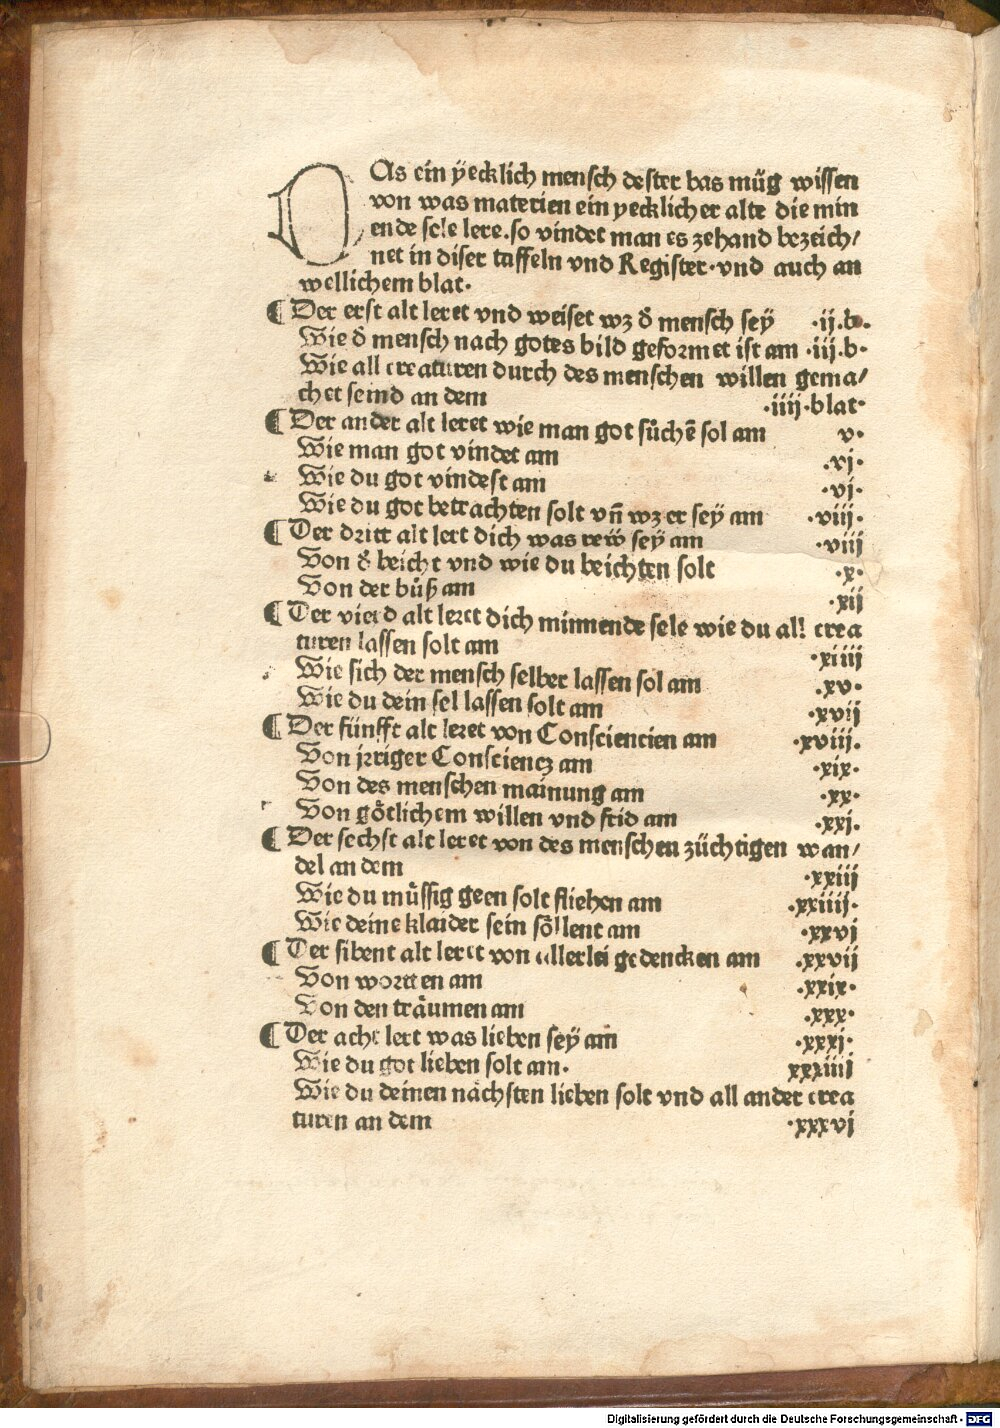 DAs ein ÿecklich mensch dester bas mug̈ wissen
von was materien ein yecklicher alte die min
ende sele lere.so vindet man es zehand bezeich/
net in diser taffeln vnd Register·vnd auch an
wellichem blat·
⸿ Der erst alt leret vnd weiset wz d̄ mensch sey ·ij.b·
Wie d̄ mensch nach gotes bild geformet ist am ·iij.b·
Wie all creaturen durch des menschen willen gema/
chet seind an dem ·iiij·blat·
⸿ Der ander alt leret wie man got sůchē sol am v·
Wie man got vindet am .vj·
Wie du got vindest am ·vj·
Wie du got betrachten solt vn̄ wz er seÿ am ·viij·
⸿ Der dritt alt lert dich was rew̄ seÿ am ·viij
Von d̄ beicht vnd wie du beichten solt ·x·
Von der bůsz am ·xij
⸿ Der vierd alt leret dich minnende sele wie du all crea
turen lassen solt am ·xiiij
Wie sich der mensch selber lassen sol am ·xv·
Wie du dein sel lassen solt am ·xvij
⸿ Der fünfft alt leret von Consciencien am ·xviij.
Von jrriger Consciencz am ·xix·
Von des menschen mainung am ·xx·
Von götlichem willen vnd frid am ·xxj.
⸿ Der sechst alt leret von des menschen züchtigen wan/
del an dem ·xxiij
Wie du müssig geen solt fliehen am ·xxiiij·
Wie deine klaider sein söllent am ·xxvj
⸿ Der sibent alt leret von allerlei gedencken am ·xxvij
Von wortten am ·xxix·
Von den träumen am ·xxx·
⸿ Der acht lert was lieben sey am ·xxxj·
Wie du got lieben solt am· xxxiiij
Wie du deinen nächsten lieben solt vnd all ander crea
turen an dem ·xxxvj
Digitalisierung gefördert durch die Deutsche Forschungsgemeinschaft · DFG